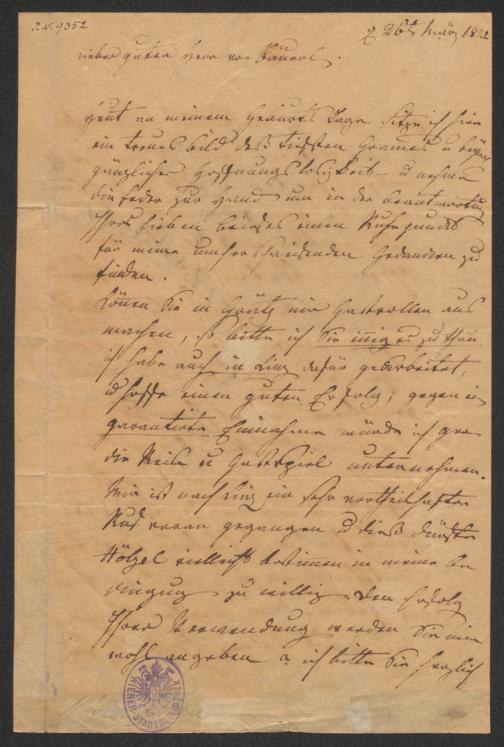 J.N. 9352
26ten März 18
lieber guter Herr von
Heut an meinem Geburts Tage sitze ich hier
ein treues Bild des tiefsten Grames u
gänzlicher Hoffnungslosigkeit – u nehme
die Feder zur Hand um in der Beantwortung
Ihres lieben Briefes einen Ruhepunct
für meine umherschweifenden Gedancken zu
finden.
Können Sie in Grätz mir Gastrollen aus
machen, so bitte ich Sie innig es zu thun
ich habe auch in Linz dafür gearbeitet,
hoffe einen guten Erfolg; gegen ein
garantirte Einnahme würde ich gern
die Reise u Gastspiel unternehmen.
Mir ist nach Linz ein sehr vortheilhafter
Ruf voran gegangen u dieß dürfte
Hölzel vielleicht bestimmen in meine Be
dingung zu willigen den Erfolg
Ihrer Verwendung werden Sie mir
wohl angeben? ich bitte Sie herzlich
WIENER STADTBIBLIOTHEK